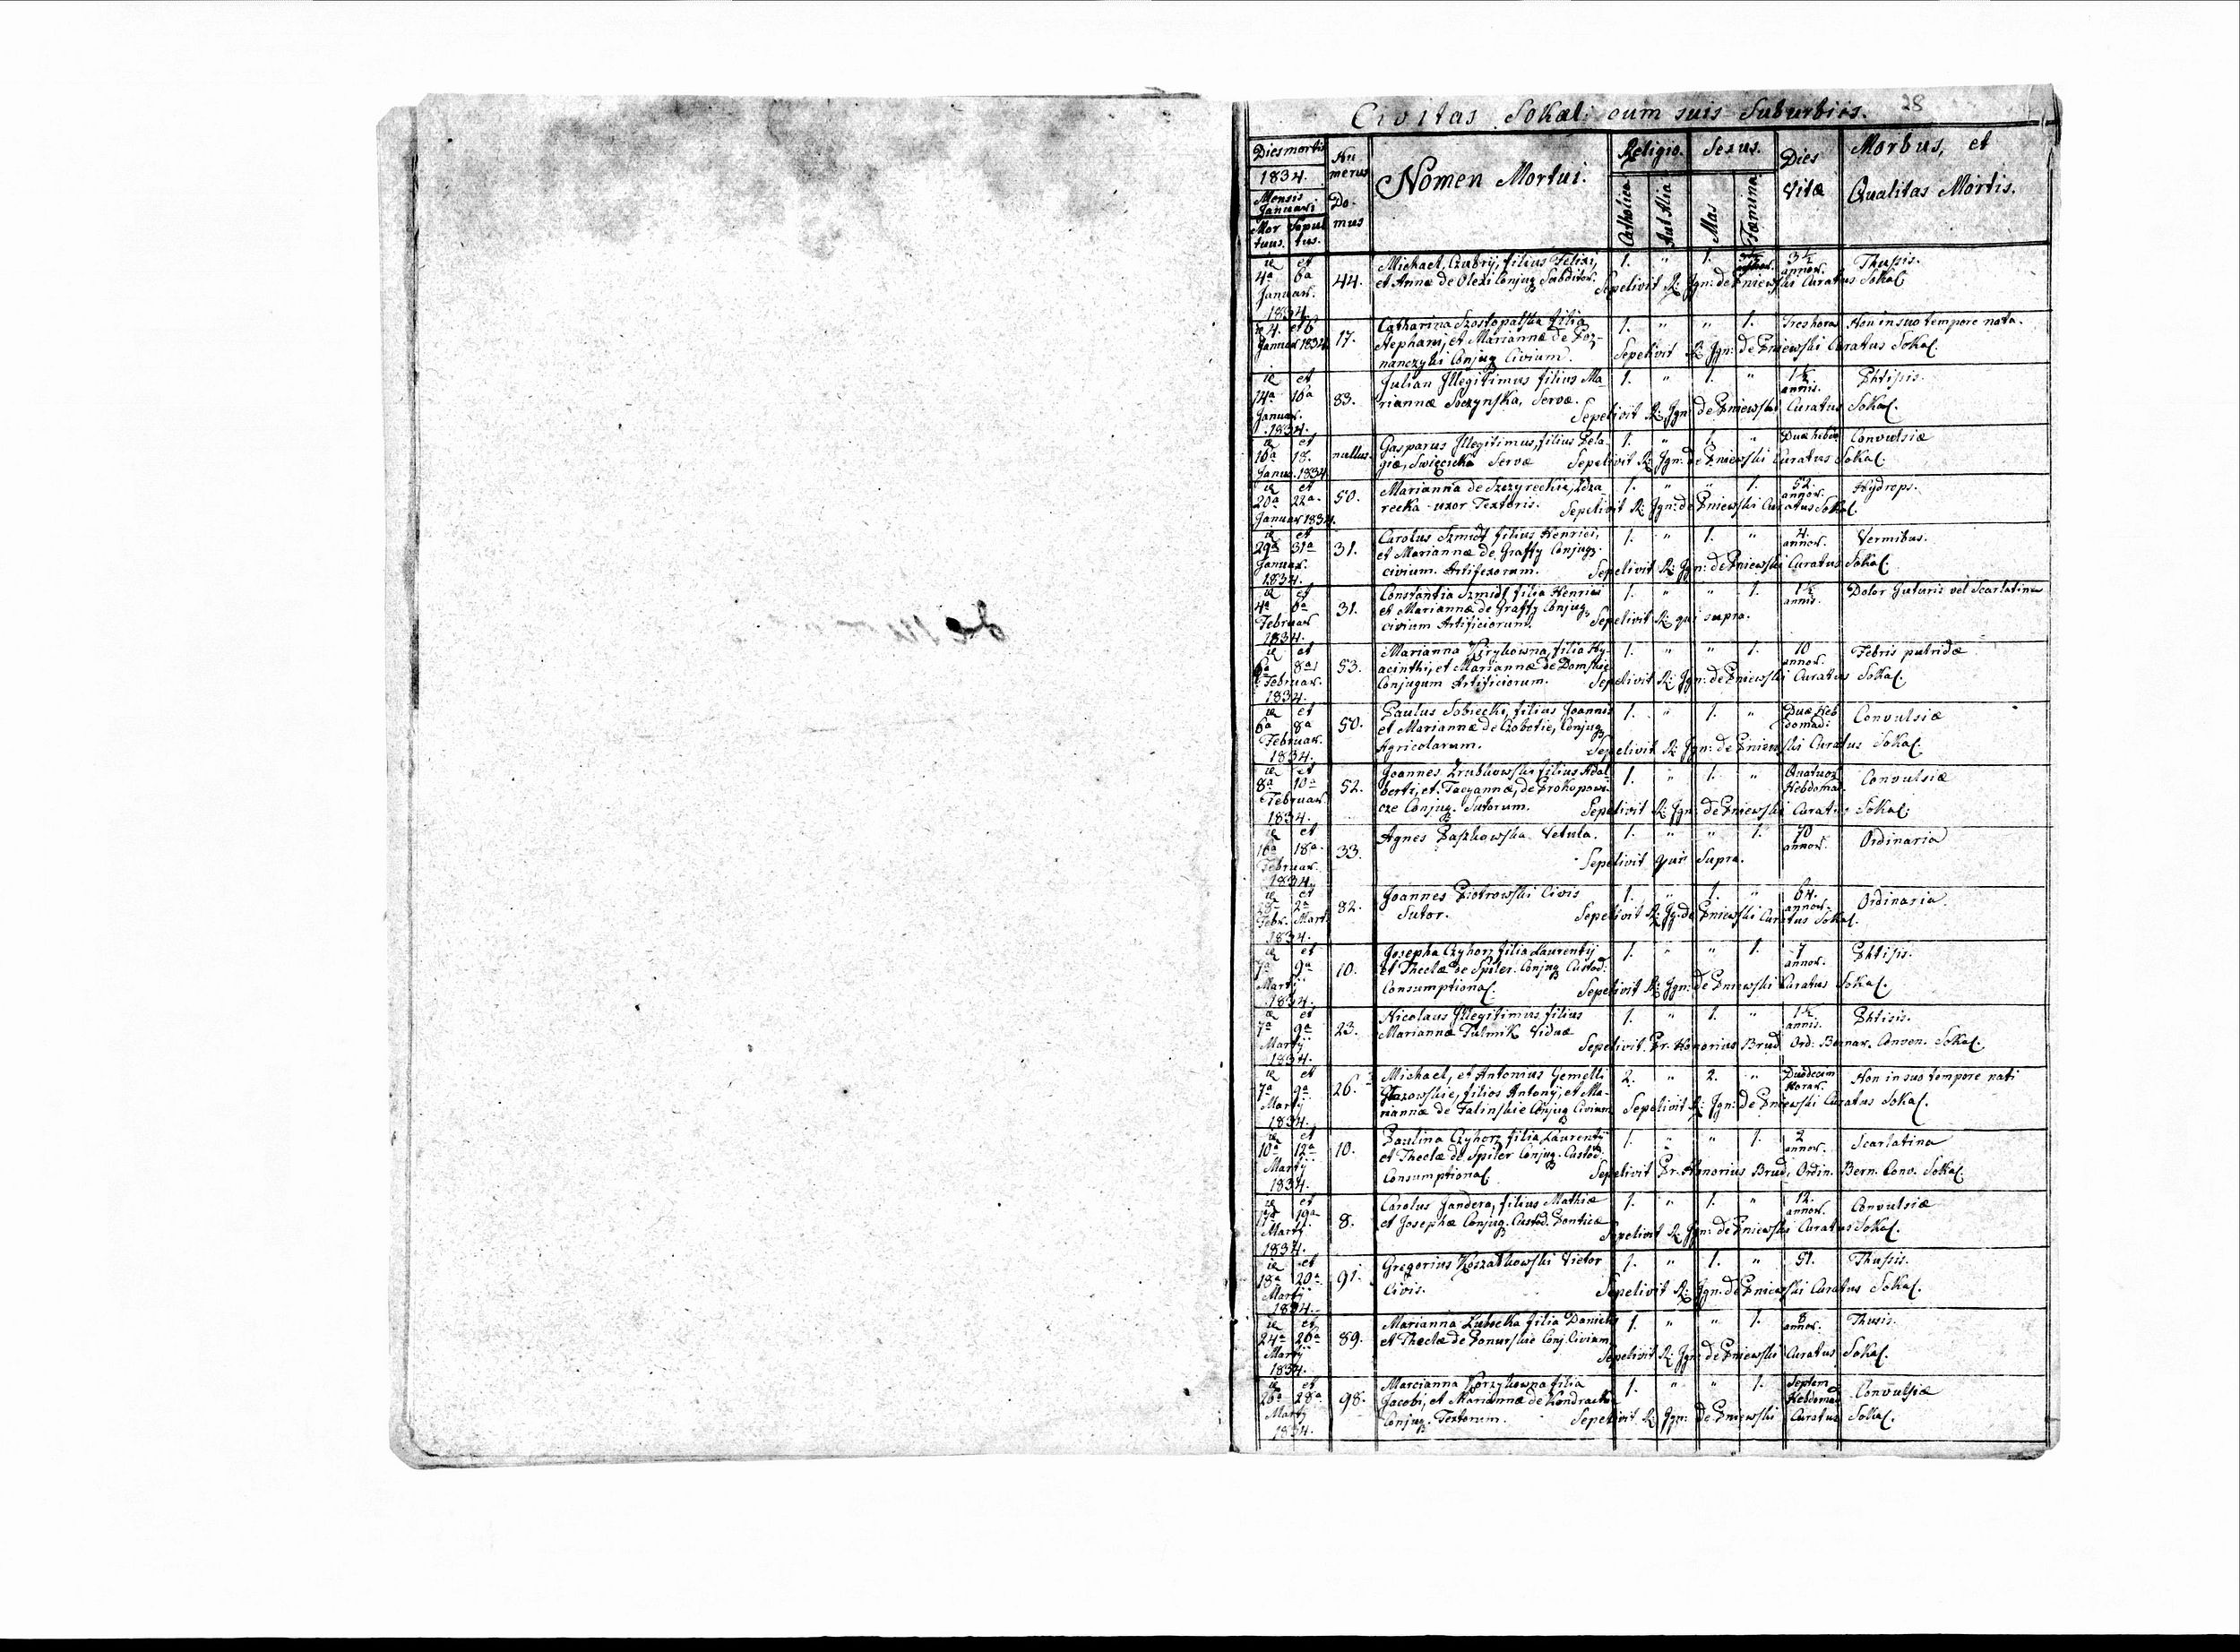 28
Civitas Sokal: cum suis Suburbiis.
Dies mortis
1834.
Mensis
Januari
Mor
tuus.
Sepul
tus.
Nu
merus
Do-
mus
Nomen Mortui.
Religio.
Catholica
Aut Alia
Sexus.
Mas
Fæmina
Dies
Vitæ
Morbus, et
Qualitas Mortis.
4a et 6a
Januar.
1834.
44.
Michael, Czubrij, filius Felixi,
et Annæ de Olexi Conjug. Subditor.
1. " 1.
3½
annor.
Thusis.
Sepelivit R: Ign: de Pniewski Curatus Sokal.
4. et 6
Januar 1834
17.
Catharina Szostopalska filia
Stephani, et Mariannæ de Poz-
nanczyki Conjug. Civium.
1. " " 1.
Tres horas
Non in suo tempore nata.
Sepelivit R: Ign: de Pniewski Curatus Sokal.
14a et 16a
Januar.
1834.
83.
Julian Illegitimus filius Ma-
riannæ Soczynska, Servæ.
1. " 1. "
1½
annis.
Phtisis.
Sepelivit R: Ign: de Pniewski Curatus Sokal.
16a et 18.
Januar. 1834
nullus.
Gasparus Illegitimus, filius Pela-
giæ, Swięcicka Servæ
1. " 1. "
Duæ hebd.
Convulsiæ
Sepelivit R: Ign: de Pniewski Curatus Sokal.
20a et 22a.
Januar 1834.
50.
Marianna de Szczyreckie,
recka uxor Textoris.
1. " " 1.
52.
annor.
Hydrops.
Sepelivit R: Ign: de Pniewski Curatus Sokal.
29a et 31a
Januar.
1834.
31.
Carolus Szmidt filius Henrici,
et Mariannæ de Graffy Conjug.
civium. Artifexorum.
1. " 1. "
4.
annor.
Vermibus.
Sepelivit R: Ign: de Pniewski Curatus Sokal.
4a et 6a
Februar
1834.
31.
Constantia Szmidt filia Henrici
et Mariannæ de Graffy Conjug.
civium Artificiorum.
1. " " 1.
1½
annis.
Dolor Guturis vel Scarlatina
Sepelivit R: qui supra.
6a et 8a
Februar.
1834.
53.
Marianna Kirykowna, filia Hy-
acinthi, et Mariannæ de Domskie
Conjugum Artificiorum.
1. " " 1.
10
annor.
Febris putridæ
Sepelivit R: Ign: de Pniewski Curatus Sokal.
6a et 8a
Februar.
1834.
50.
Paulus Sobiecki, filius Joannis
et Mariannæ de Czobotie, Conjug.
Agricolarum.
1. " 1. "
Duæ Heb
domad:
Convulsiæ
Sepelivit R: Ign: de Pniewski Curatus Sokal.
8a et 10a
Februar.
1834.
52.
Joannes Zrubkowski filius Adal-
berti, et Tacyannæ, de Prokopowi-
cze Conjug. Sutorum.
1. " 1. "
Quatuor
Hebdomad.
Convulsiæ
Sepelivit R: Ign: de Pniewski Curatus Sokal.
16a et 18a.
Februar.
1834.
33.
Agnes Paszkowska Vetula.
1. " " 1.
70
annor.
Ordinaria
Sepelivit qui Supra.
28a et 2a
Febr. Mart.
1834.
82.
Joannes Piotrowski Civis
Sutor.
1. " 1. "
64.
annor.
Ordinaria.
Sepelivit R: Ig: de Pniewski Curatus Sokal.
7a et 9a
Martij
1834.
10.
Josepha Czyhorz filia Laurentij
et Theclæ de Spiler. Conjug Custod:
Consumptional.
1. " " 1.
7
annor.
Phtisis.
Sepelivit R: Ign: de Pniewski Curatus Sokal.
7a et 9a
Martij
1834.
23.
Nicolaus Illegitimus filius
Mariannæ Tulmik Viduæ
1. " 1. "
1½
annis.
Phtisis.
Sepelivit Pr. Honorius Brud Ord: Bernar. Conven. Sokal.
7a et 9a
Martij
1834.
26.
Michael, et Antonius Gemelli
Glazowskie, filios Antonij, et Ma-
riannæ de Falinskie Conjug Civium
2. " 2. "
Duodecim
Horar.
Non in suo tempore nati
Sepelivit R: Ign: de Pniewski Curatus Sokal.
10a et 12a
Martij
1834.
10.
Paulina Czyhorz filia Laurentij
et Theclæ de Spiler Conjug. Custod.
Consumptional.
1. " " 1.
2
annor.
Scarlatina
Sepelivit Pr. Honorius Brud, Ordin. Bern. Conv. Sokal.
17a et 19a
Martij.
1834.
8.
Carolus Jandera, filius Mathiæ
et Josephæ Conjug. Custod. Ponticæ
1. " 1. "
12.
annor.
Convulsiæ
Sepelivit R: Ign: de Pniewski Curatus Sokal.
18a et 20a
Martij
1834.
91.
Gregorius Koszatkowski Vietor
Civis.
1. " 1. "
51.
Thusis.
Sepelivit R: Ign: de Pniewski Curatus Sokal.
24a et 26a
Martij
1834.
89.
Marianna Lubecka filia Danielis
et Theclæ de Ponurskie Conj. Civium
1. " " 1.
8
annor.
Thusis.
Sepelivit R: Ign: de Pniewski Curatus Sokal.
26a et 28a
Martij
1834.
98.
Marcianna Korzykowna filia
Jacobi, et Mariannæ de Kondracka
Conjug. Textorum.
1. " " 1.
Septem
Hebdomad
Convulsiæ
Sepelivit R: Ign: de Pniewski Curatus Sokal.